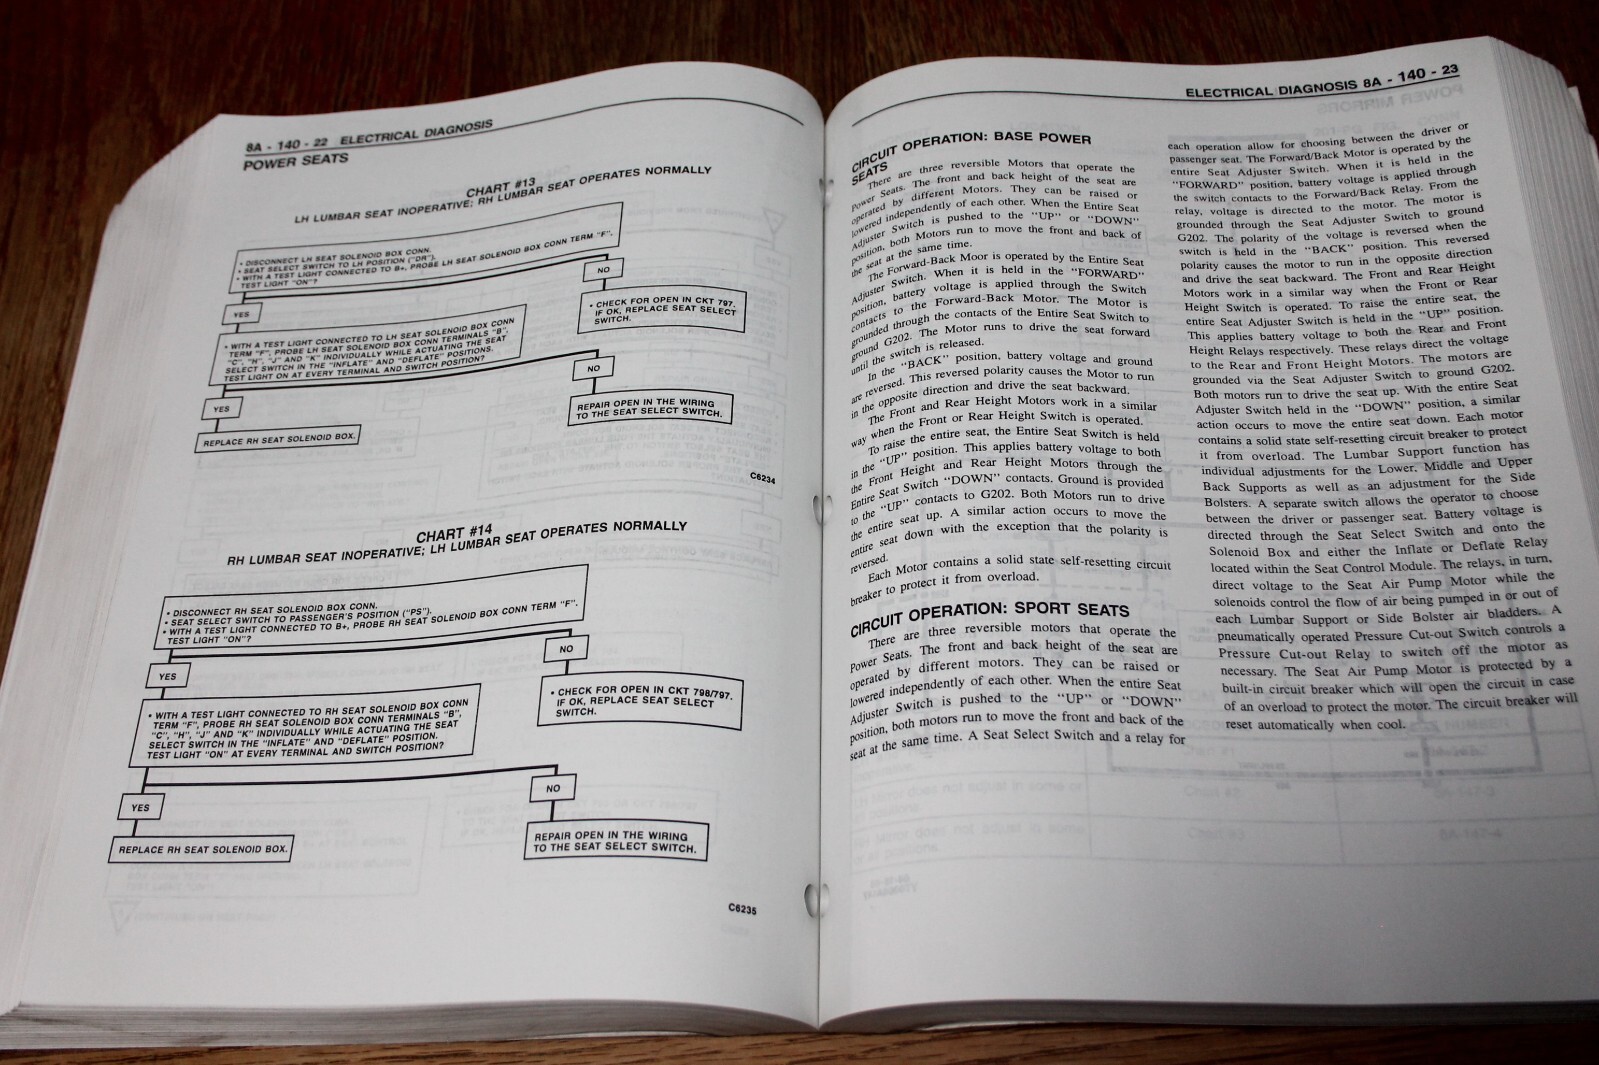 8A - 140 - 22 ELECTRICAL DIAGNOSIS
POWER SEATS
CHART #13
LH LUMBAR SEAT INOPERATIVE; RH LUMBAR SEAT OPERATES NORMALLY
• DISCONNECT LH SEAT SOLENOID BOX CONN.
• SEAT SELECT SWITCH TO LH POSITION ("DR").
• WITH A TEST LIGHT CONNECTED TO B+, PROBE LH SEAT SOLENOID BOX CONN TERM "F".
TEST LIGHT "ON"?
NO
YES
• CHECK FOR OPEN IN CKT 797.
IF OK, REPLACE SEAT SELECT
SWITCH.
• WITH A TEST LIGHT CONNECTED TO LH SEAT SOLENOID BOX CONN
TERM "F", PROBE LH SEAT SOLENOID BOX CONN TERMINALS "B",
"C", "H", "J" AND "K" INDIVIDUALLY WHILE ACTUATING THE SEAT
SELECT SWITCH IN THE "INFLATE" AND "DEFLATE" POSITIONS.
TEST LIGHT ON AT EVERY TERMINAL AND SWITCH POSITION?
NO
YES
REPAIR OPEN IN THE WIRING
TO THE SEAT SELECT SWITCH.
REPLACE RH SEAT SOLENOID BOX.
C6234
CHART #14
RH LUMBAR SEAT INOPERATIVE; LH LUMBAR SEAT OPERATES NORMALLY
• DISCONNECT RH SEAT SOLENOID BOX CONN.
• SEAT SELECT SWITCH TO PASSENGER'S POSITION ("PS").
• WITH A TEST LIGHT CONNECTED TO B+, PROBE RH SEAT SOLENOID BOX CONN TERM "F".
TEST LIGHT "ON"?
NO
YES
• CHECK FOR OPEN IN CKT 798/797.
IF OK, REPLACE SEAT SELECT
SWITCH.
• WITH A TEST LIGHT CONNECTED TO RH SEAT SOLENOID BOX CONN
TERM "F", PROBE RH SEAT SOLENOID BOX CONN TERMINALS "B",
"C", "H", "J" AND "K" INDIVIDUALLY WHILE ACTUATING THE SEAT
SELECT SWITCH IN THE "INFLATE" AND "DEFLATE" POSITION.
TEST LIGHT "ON" AT EVERY TERMINAL AND SWITCH POSITION?
NO
YES
REPAIR OPEN IN THE WIRING
TO THE SEAT SELECT SWITCH.
REPLACE RH SEAT SOLENOID BOX.
C6235
ELECTRICAL DIAGNOSIS 8A - 140 - 23
CIRCUIT OPERATION: BASE POWER
SEATS
There are three reversible Motors that operate the
Power Seats. The front and back height of the seat are
operated by different Motors. They can be raised or
lowered independently of each other. When the Entire Seat
Adjuster Switch is pushed to the "UP" or "DOWN"
position, both Motors run to move the front and back of
the seat at the same time.
The Forward-Back Moor is operated by the Entire Seat
Adjuster Switch. When it is held in the "FORWARD"
position, battery voltage is applied through the Switch
contacts to the Forward-Back Motor. The Motor is
grounded through the contacts of the Entire Seat Switch to
ground G202. The Motor runs to drive the seat forward
until the switch is released.
In the "BACK" position, battery voltage and ground
are reversed. This reversed polarity causes the Motor to run
in the opposite direction and drive the seat backward.
The Front and Rear Height Motors work in a similar
way when the Front or Rear Height Switch is operated.
To raise the entire seat, the Entire Seat Switch is held
in the "UP" position. This applies battery voltage to both
the Front Height and Rear Height Motors through the
Entire Seat Switch "DOWN" contacts. Ground is provided
to the "UP" contacts to G202. Both Motors run to drive
the entire seat up. A similar action occurs to move the
entire seat down with the exception that the polarity is
reversed.
Each Motor contains a solid state self-resetting circuit
breaker to protect it from overload.
CIRCUIT OPERATION: SPORT SEATS
There are three reversible motors that operate the
Power Seats. The front and back height of the seat are
operated by different motors. They can be raised or
lowered independently of each other. When the entire Seat
Adjuster Switch is pushed to the "UP" or "DOWN"
position, both motors run to move the front and back of the
seat at the same time. A Seat Select Switch and a relay for
each operation allow for choosing between the driver or
passenger seat. The Forward/Back Motor is operated by the
entire Seat Adjuster Switch. When it is held in the
"FORWARD" position, battery voltage is applied through
the switch contacts to the Forward/Back Relay. From the
relay, voltage is directed to the motor. The motor is
grounded through the Seat Adjuster Switch to ground
G202. The polarity of the voltage is reversed when the
switch is held in the "BACK" position. This reversed
polarity causes the motor to run in the opposite direction
and drive the seat backward. The Front and Rear Height
Motors work in a similar way when the Front or Rear
Height Switch is operated. To raise the entire seat, the
entire Seat Adjuster Switch is held in the "UP" position.
This applies battery voltage to both the Rear and Front
Height Relays respectively. These relays direct the voltage
to the Rear and Front Height Motors. The motors are
grounded via the Seat Adjuster Switch to ground G202.
Both motors run to drive the seat up. With the entire Seat
Adjuster Switch held in the "DOWN" position, a similar
action occurs to move the entire seat down. Each motor
contains a solid state self-resetting circuit breaker to protect
it from overload. The Lumbar Support function has
individual adjustments for the Lower, Middle and Upper
Back Supports as well as an adjustment for the Side
Bolsters. A separate switch allows the operator to choose
between the driver or passenger seat. Battery voltage is
directed through the Seat Select Switch and onto the
Solenoid Box and either the Inflate or Deflate Relay
located within the Seat Control Module. The relays, in turn,
direct voltage to the Seat Air Pump Motor while the
solenoids control the flow of air being pumped in or out of
each Lumbar Support or Side Bolster air bladders. A
pneumatically operated Pressure Cut-out Switch controls a
Pressure Cut-out Relay to switch off the motor as
necessary. The Seat Air Pump Motor is protected by a
built-in circuit breaker which will open the circuit in case
of an overload to protect the motor. The circuit breaker will
reset automatically when cool.